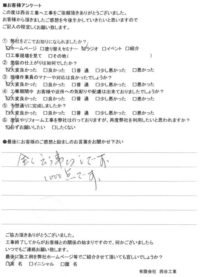 ■お客様アンケート
この度は西谷工業へ工事をご依頼頂きありがとうございました。
お客様から頂きましたご感想を今後生かしていきたいと思いますので
ご記入の程宜しくお願い致します。
① 弊社をどこでお知りになられましたか？
ホームページ □塗り替えセミナー □ラジオ □イベント □紹介
□工事現場を見て □その他（ ）
塗装の仕上がりは如何でしたか？
大変良かった □良かった □普通 □少し悪かった □悪かった
現場作業員のマナーや対応は良かったでしょうか？
大変良かった □良かった □普通 □少し悪かった □悪かった
④ 工事期間中 お客様や近所への気配りや配慮は出来ておりましたでしょうか？
大変良かった □良かった □普通 □少し悪かった □悪かった
大変良かった □良かった □普通 □少し悪かった □悪かった
塗装やリフォーム工事を弊社は行っておりますが、再度弊社を利用したいと思われますか？
必ずお願いしたい □したくない
●最後にお客様のご感想と励ましのお言葉をお聞かせ下さい
です。
ご協力頂きありがとうございました。
工事終了してからがお客様との関係の始まりですので、何かございましたら
いつでもご連絡お願い致します。
最後に施工例を弊社ホームページ等でご紹介させて頂いても宜しいでしょうか？
実名 □イニシャル □匿名
有限会社 西谷工業